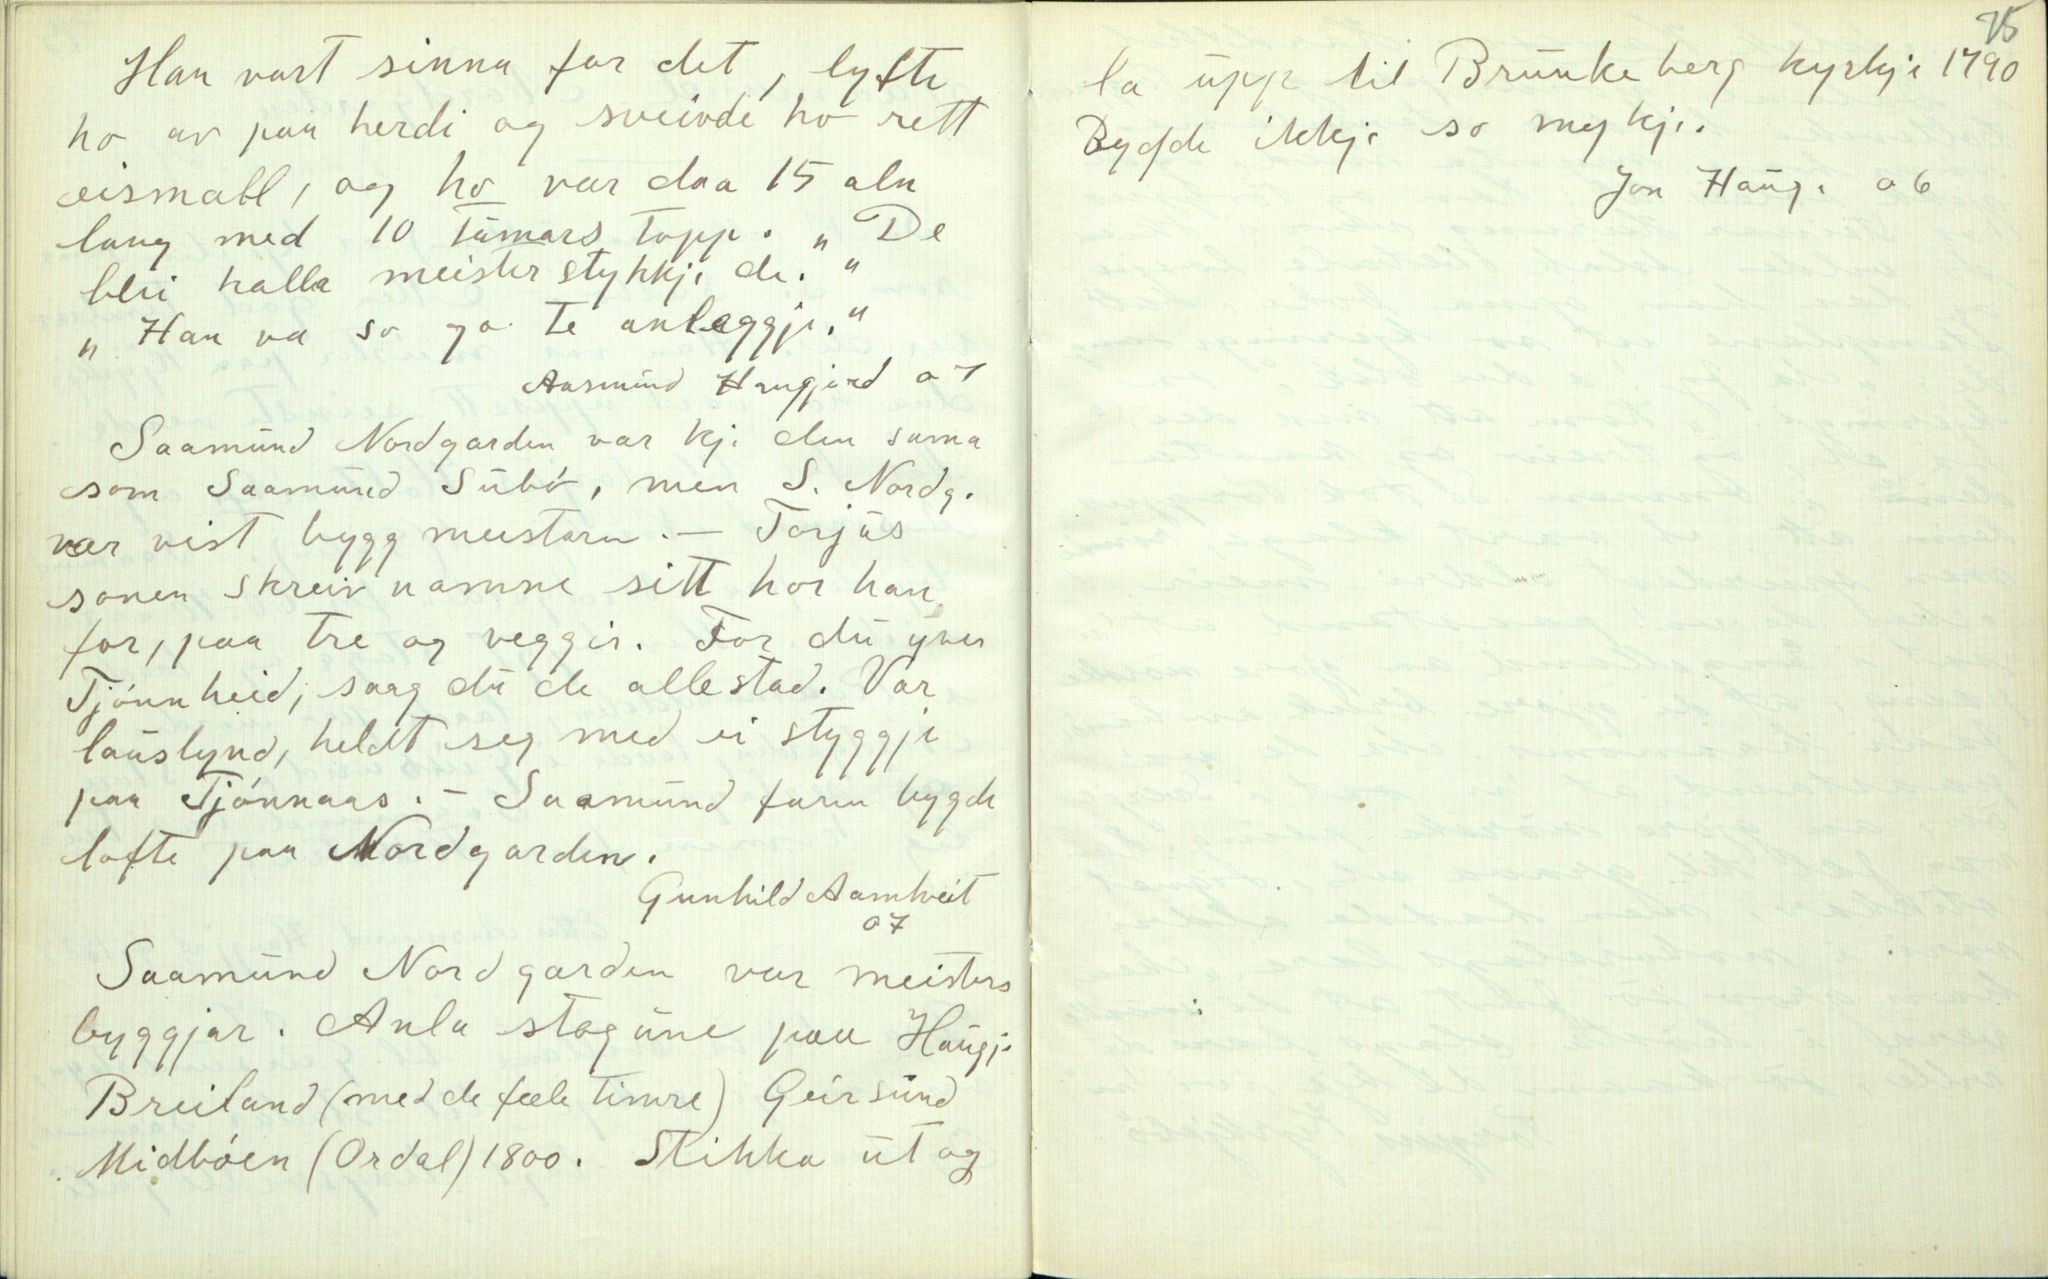 Han vart sinna for det, lyfte
ho av paa herdi og sveivde ho rett
eismall, og ho var daa 15 aln
lang med 10 tumars topp. „De
bli kalla meisterstykkji de."
„Han va so go te anleggje."
Aasmund Haugjord 07
Saamund Nordgarden var kji den sama
som Saamund Subø, men S. Nordg.
var vist byggmeistaren. — Torjus
sonen skreiv namne sitt hor han
for, paa tre og veggir. For du yver
Tjønnheid, saag du de allestad. Var
lauslynd, heldt seg med ei styggje
paa Tjønnaas. — Saamund faren bygde
lofte paa Nordgarden.
Gunhild Aamtveit
07
Saamund Nordgarden var meisters
byggjar. Anla stogune paa Haugji
Breiland (med de fæle timre) Geirsund
Midbøen (Ordal) 1800. Stikka ut og
75
la upp til Brunkeberg kyrkje 1790
Bygde ikkji so mykji.
Jon Haug. 06